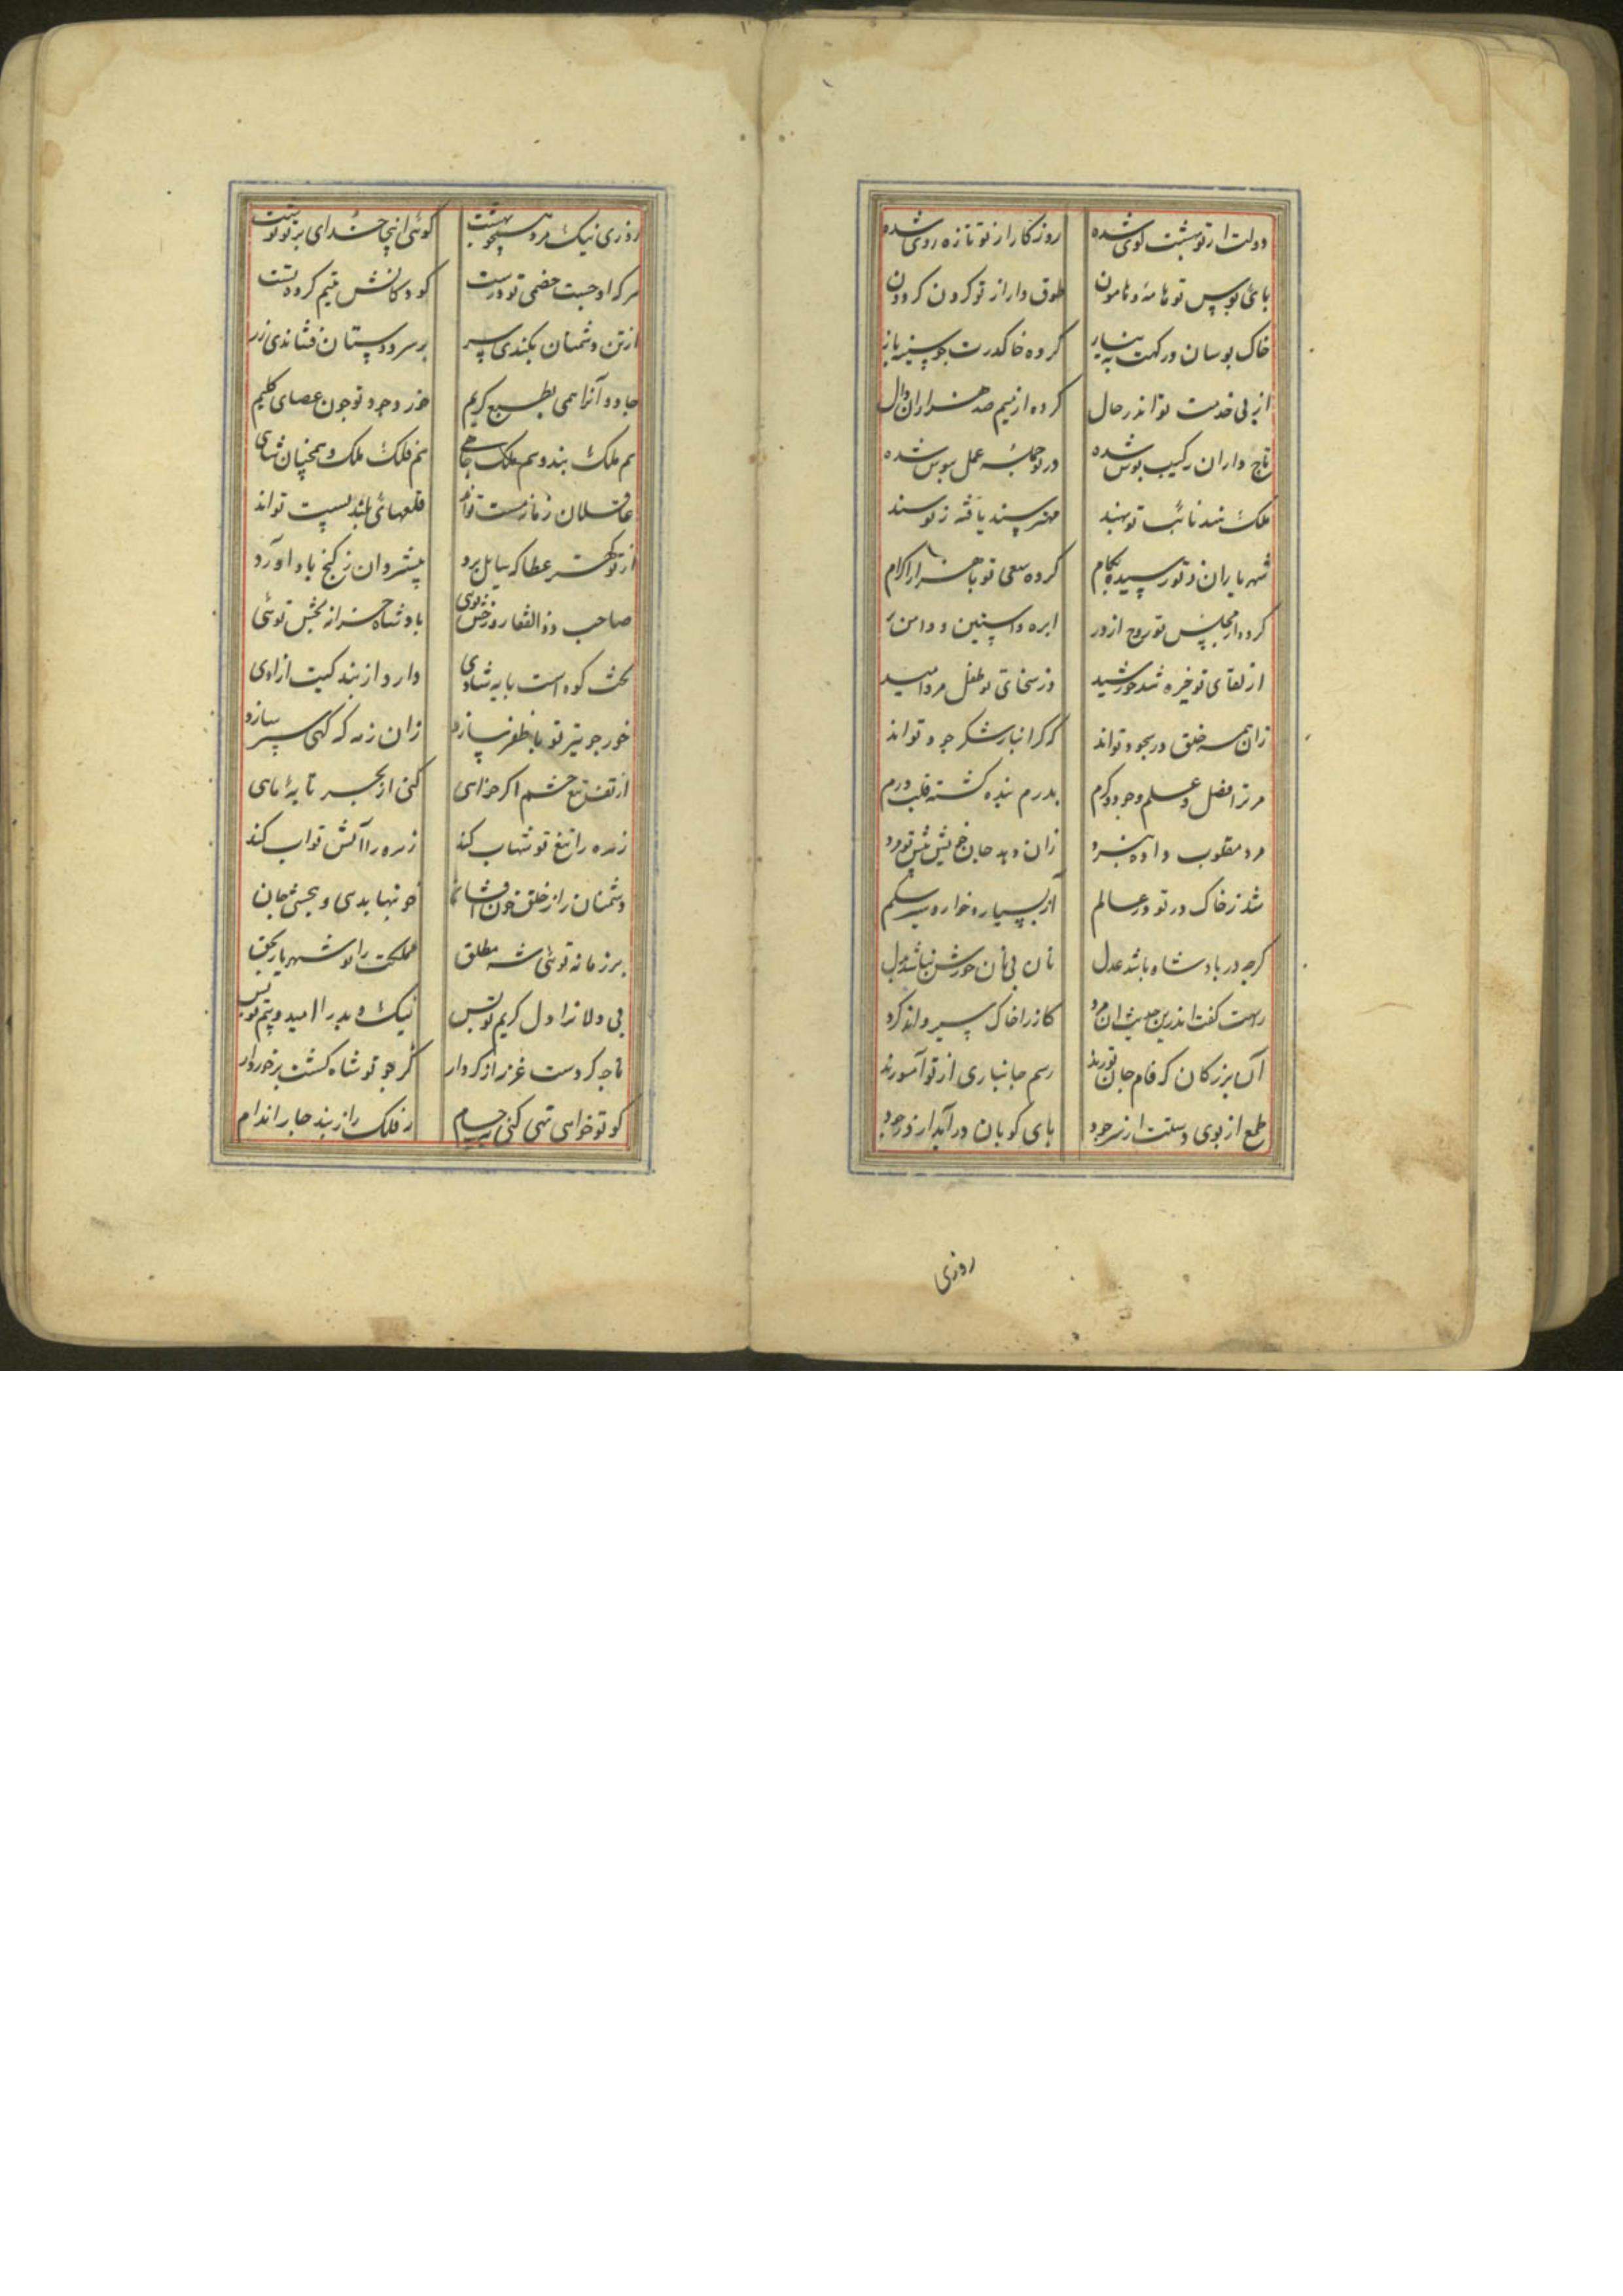 دولت از تو بهشت کوی شده روزکار از تو تازه روی شده
بای بوس تو هامه و هامون طوق دار از تو کردن کردون
خاک بوسان درکهت به نیاز کرده خاک درت جو سینه باز
از بی خدمت تو اندر حال کرده از نیم صد هزاران دال
تاج داران رکیب بوس شده در تو جمله عمل بیوس شده
ملک هند نائب تو بهند قیصر سند یافته ز تو سند
شهریاران ز تو رسیده بکام کرده سعی تو با هزار اکرام
کرده از مجلس تو روح از دور ابره و استین و دامن
از لقای تو خیره شد خورشید وز سخای تو طفل مرد امید
زان همه خلق در سجود تواند که کرانبار شکر جود تواند
مر ترا فضل و علم و جود و کرم بدرم بنده کشته قلب درم
مرد مقلوب داده نبرد زان دهد جان خویش بیش تو مرد
شد ز خاک در تو در عالم از بسیار و خوار سیر شکم
کرجه در بادشاه باشد عدل نان بی نان خورش نباشد
راست کفت اندرین حدیث ان مرد کاز را خاک سیر داند کرد
آن بزرکان که فام جان توزند رسم جانبازی از تو آموزند
طمع از بوی دستت از سر جود بای کوبان در آید از در جود
روزی
روزی نیک مرد همچو بهشت کوئی اینجا خدای بر تو نوشت
هر که او جست خصمی تو درست کودکانش یتیم کرد نخست
از تن دشمنان بکندی سر بر سر دوستان فشاندی زر
جادو آنرا همی بطبع کریم خورد جود تو جون عصای کلیم
هم ملک بند و هم ملک جاهی هم فلک ملک و همجنان شاهی
عاقلان زمانه مست تواند قلعهای بلند بست تواند
از تو کمتر عطا که سایل برد بیشتر دان ز کنج باد آورد
صاحب ذوالفقار و رخش توئی بادشاه خزانه بخش توئی
بخت کوه است بایه شادی دارد از بند کیت ازادی
خور جو تیر تو با ظفر سازد زان زره که کهی سبر سازد
از تف تیغ خشم اکر خواهی کنی از بحر تابه ماهی
زهره را تیغ تو شهاب کند زهره را آتش تو اب کند
دشمنان را ز خلق خون افشان خونبها بدهی و ببخشی جان
بر زمانه توئی شه مطلق مملکت را تو شهریار بحق
بی دلان را دل کریم تو بس نیک و بد را امید و بیم تو بس
تاجه کردست عزر از کردار کز جو تو شاه کشت برخوردار
کو تو خواهی تهی کنی بحسام ز فلک را ز بند جار اندام